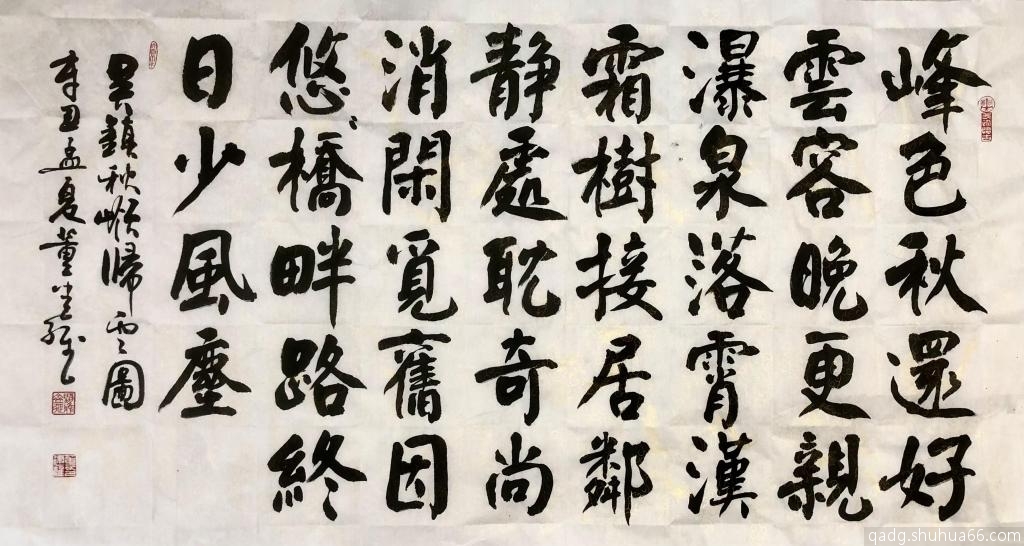 峰色秋還好
雲容晚更親
瀑泉落霄漢
霜樹接居鄰
靜處耽奇尚
消閑覓舊因
悠〻橋畔路終
日少風塵
吳鎮秋嶺歸雲圖
辛丑孟夏董
qadg.shuhua66.com